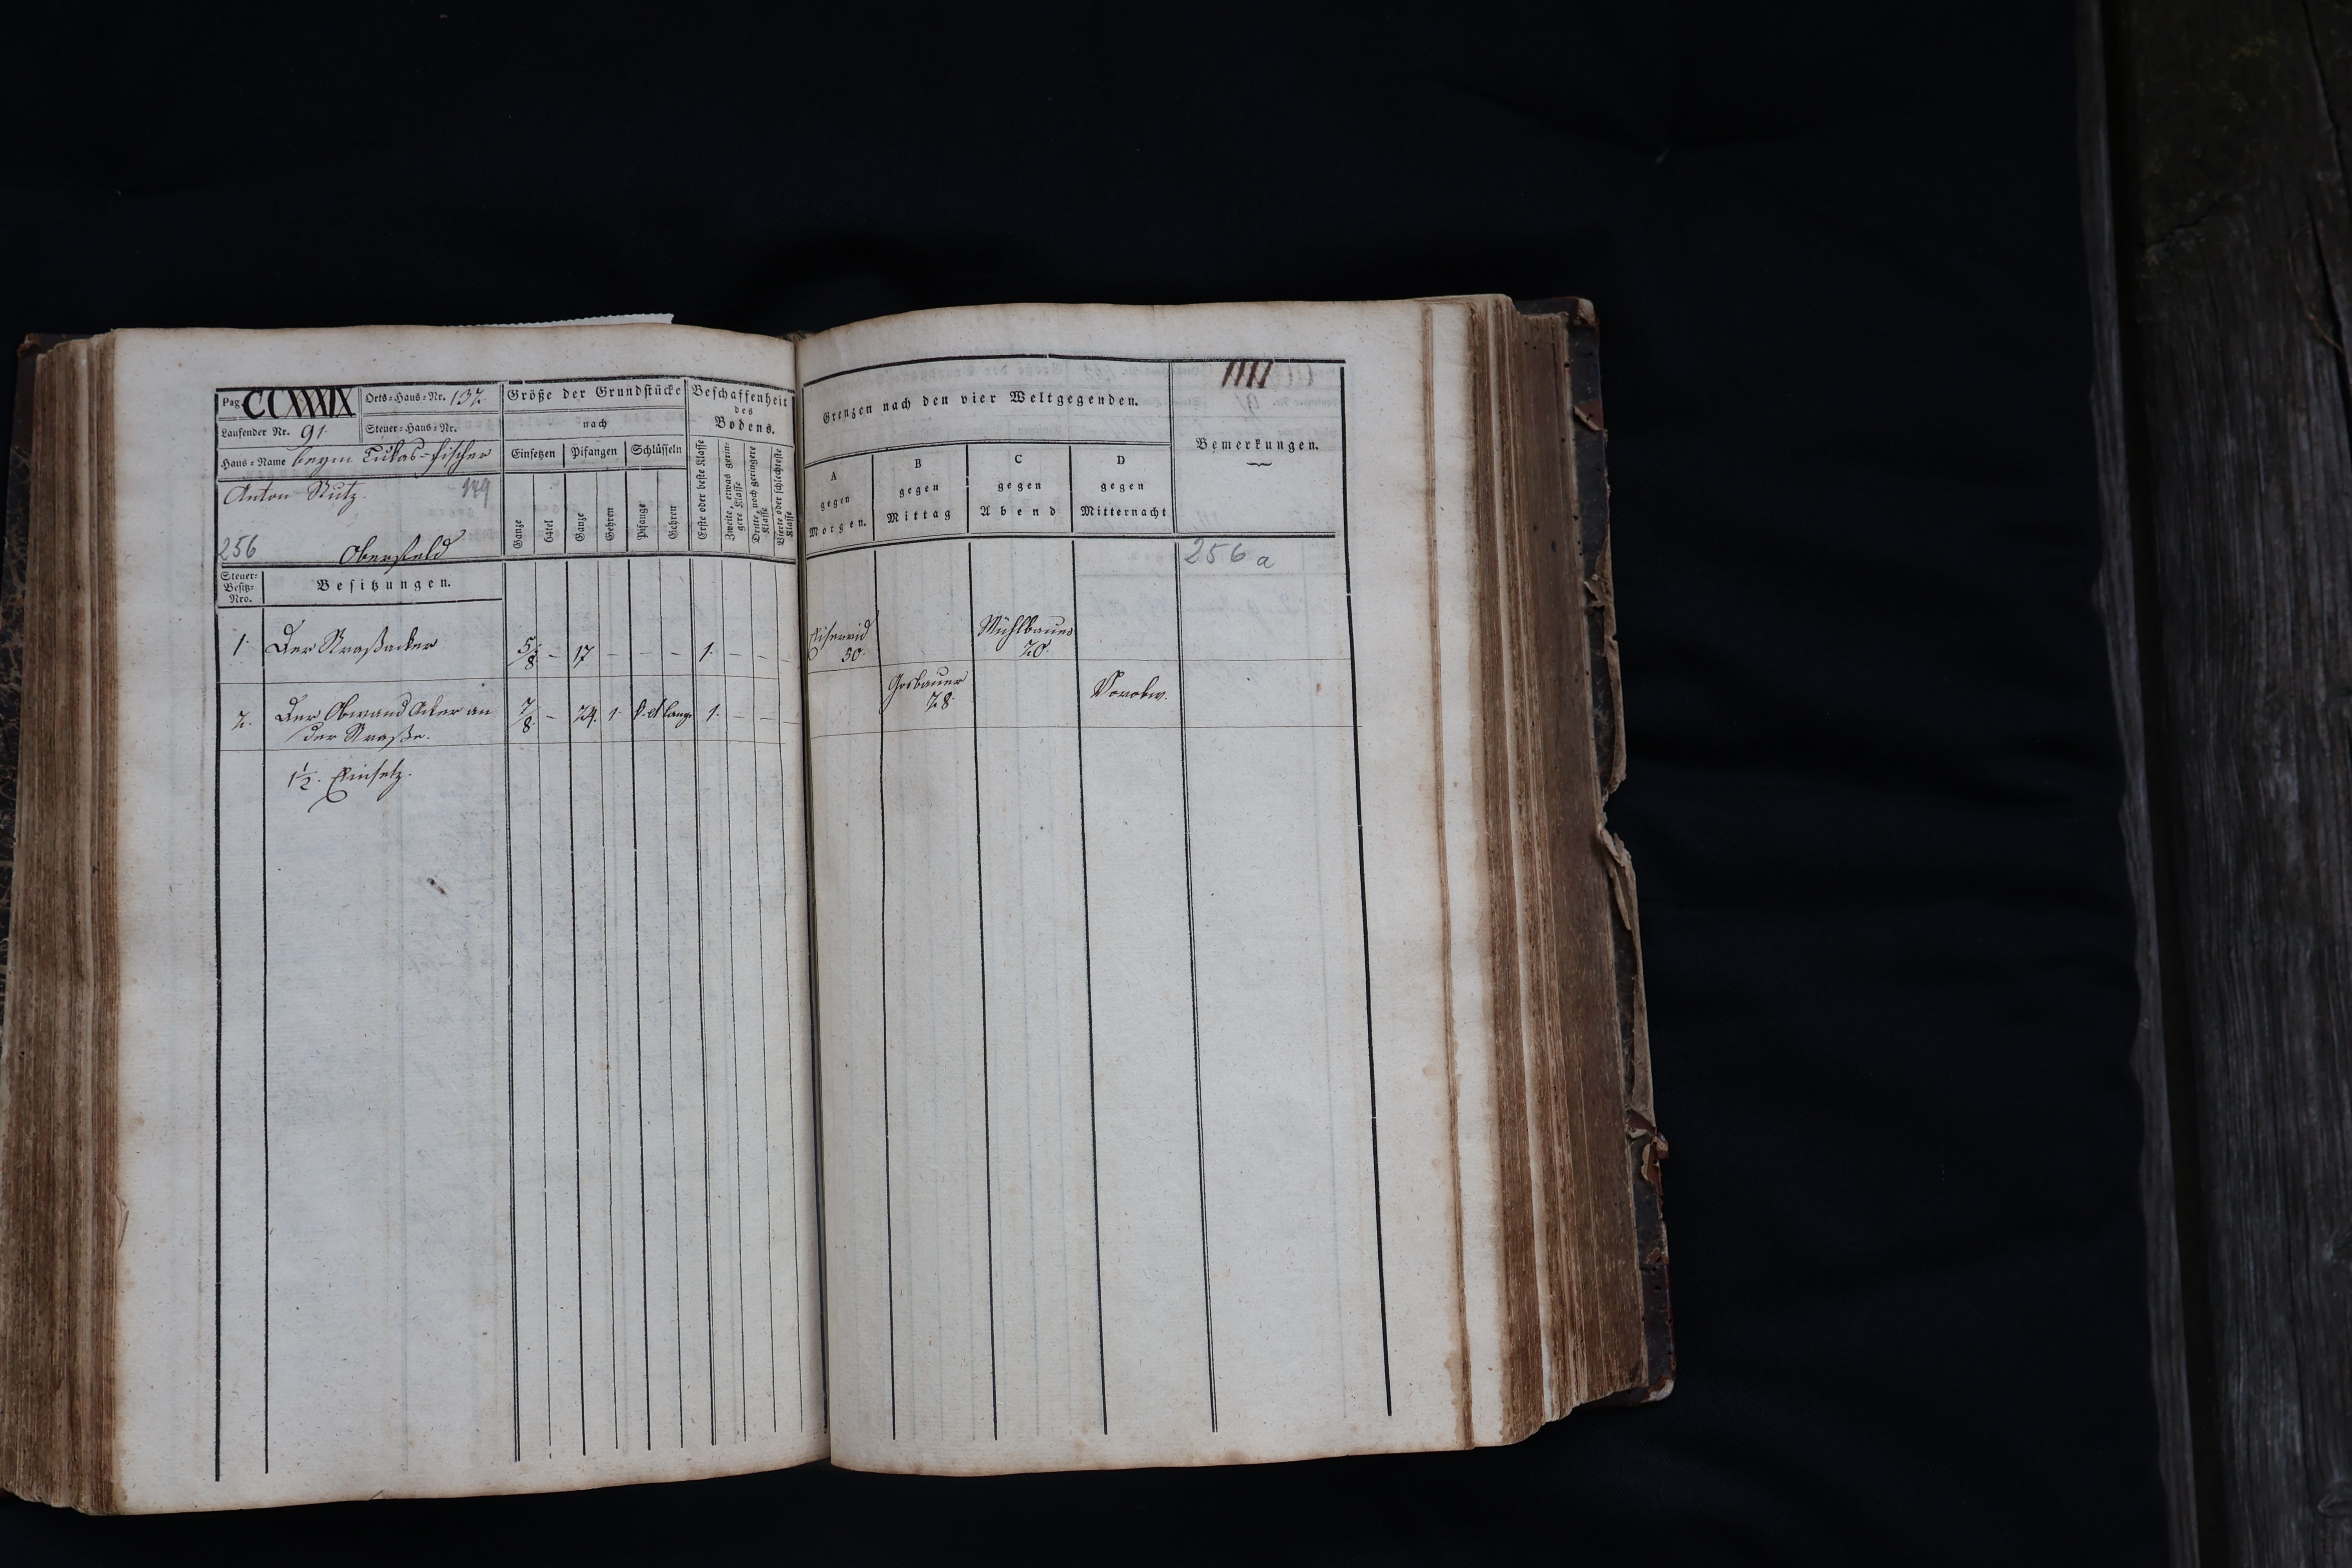 Pag. CCXXXIX Orts=Haus=Nr. 137.
Laufender Nr. 91. Steuer=Haus=Nr.
Haus=Name beym Lukas=fischer
Anton Nutz.
256 Oberfeld
Steuer=Besitz=Nro.
Besitzungen.
Größe der Grundstücke
nach
Einsetzen Pifangen Schlüsseln
Ganze 64tel Ganze Gehren Pifange Gehren
Beschaffenheit
des
Bodens.
Erste oder beste Klasse
Zweite, etwas geringere Klasse
Dritte, noch geringere Klasse
Vierte oder schlechteste Klasse
1. Der Straßacker 5/8 – 17 – – – 1. – – –
2. Der Obwand Acker an 7/8 – 24. 1. 1. – – –
der Straße.
1 1/2. Einsetz.
Grenzen nach den vier Weltgegenden.
A
gegen
Morgen.
B
gegen
Mittag
C
gegen
Abend
D
gegen
Mitternacht
Bemerkungen.
256 a
50.
Mühlbauer
20.
Gosbauer
28.